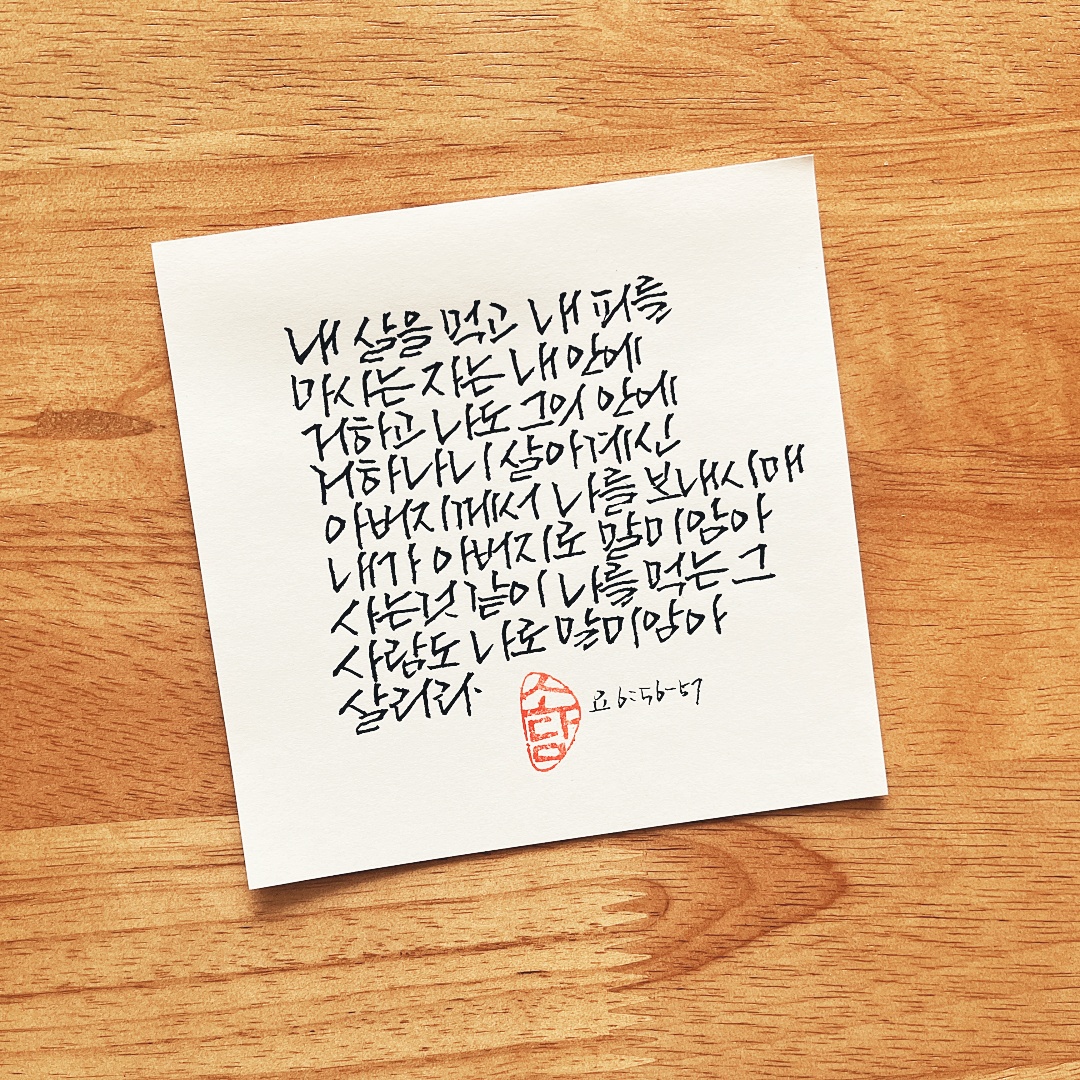 내 살을 먹고 내 피를
마시는 자는 내 안에
거하고 나도 그의 안에
거하나니 살아계신
아버지께서 나를 보내시매
내가 아버지로 말미암아
사는것 같이 나를 먹는 그
사람도 나로 말미암아
살리라
소담
요 6:56-57